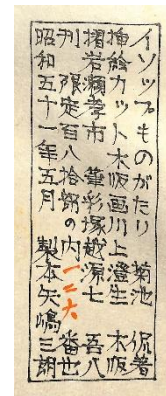 イソップものがたり　菊池　侃著
挿絵カット木版画川上澄生　木版
摺岩瀬孝市　筆彩塚越源七　吾八
刊　限定百八拾部の内一二六番也
昭和五十一年五月　製本矢嶋三朗